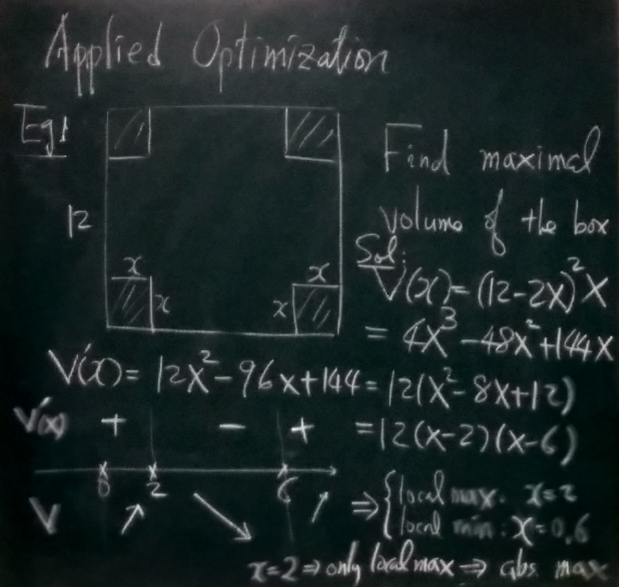 Applied Optimization
Eg1
12
x
x
x
x
Find maximal
volume of the box
Sol:
V(x)=(12-2x)²x
= 4x³-48x²+144x
V'(x)=12x²-96x+144=12(x²-8x+12)
=12(x-2)(x-6)
V'(x) + - +
0 2 6
V ↗ ↘ ↗ ⇒ { local max. x=2
local min: x=0,6
x=2⇒only local max⇒ abs. max